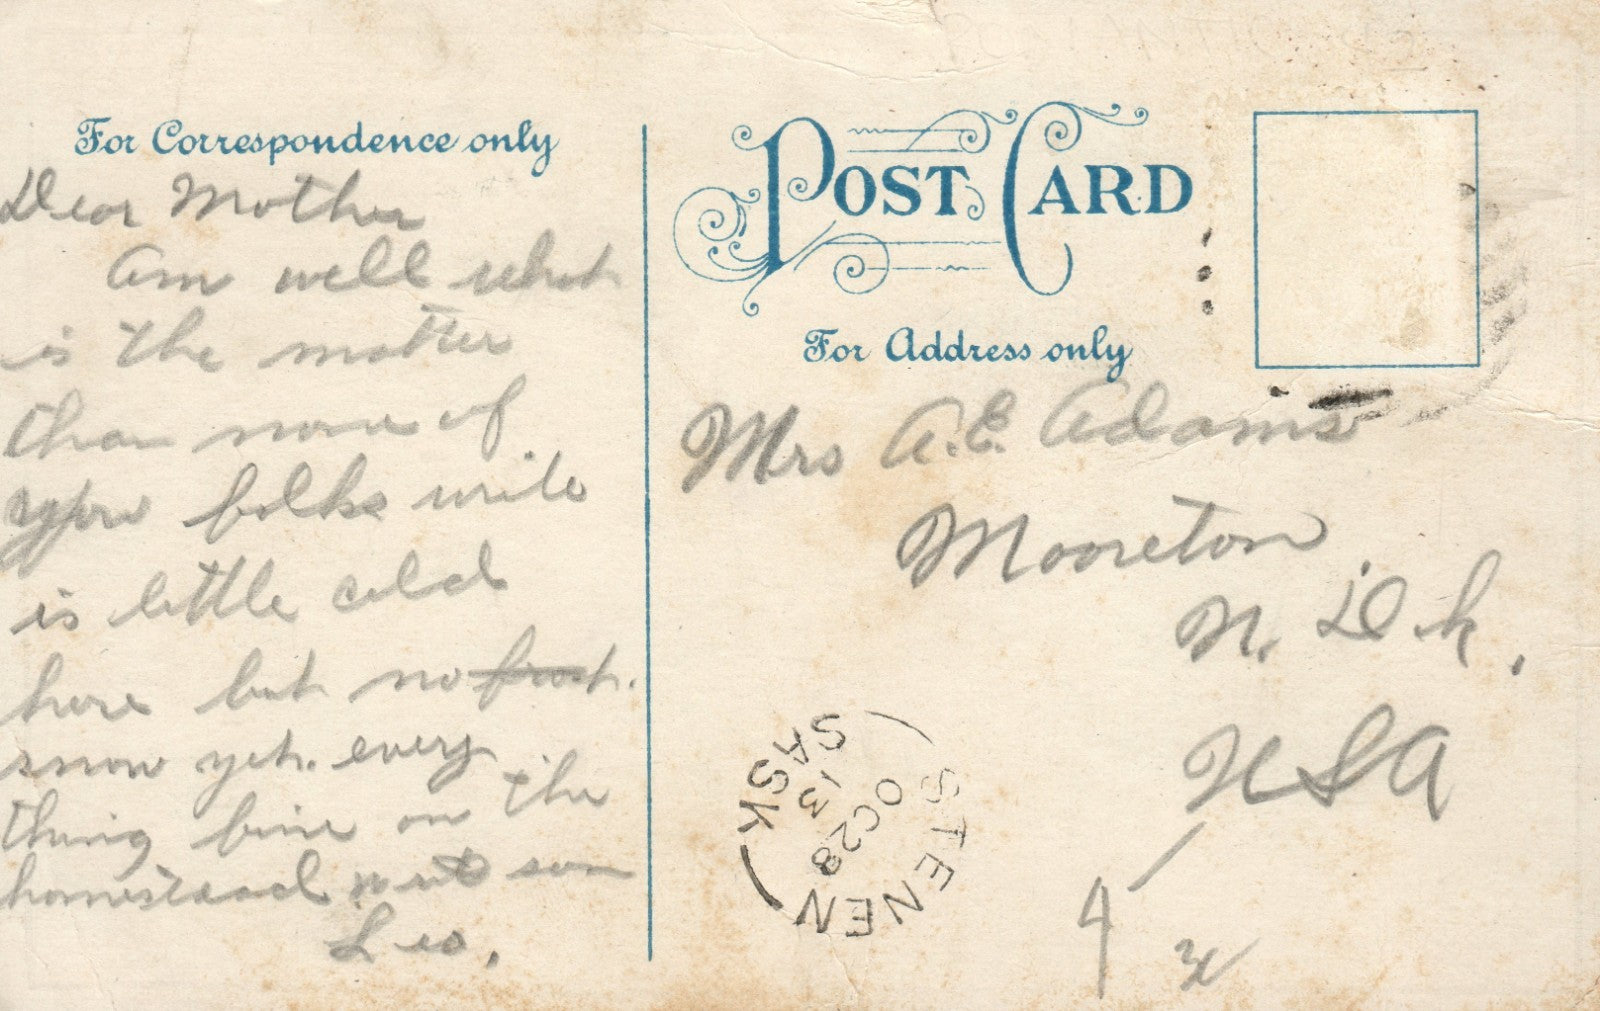 For Correspondence only
Dear Mother
Am well what
is the matter
than none of
you folks write
is little cold
here but no frost.
snow yet. every
thing fine on the
homestead write soon
Leo.
POST CARD
For Address only
Mrs A.E. Adams
Mooreton
N. Dk.
USA
STENEN
OC 28
13
SASK
4